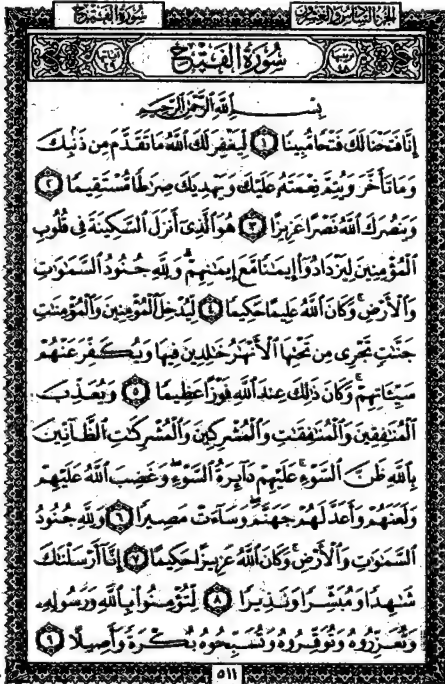 الجزء السادس والعشرون سورة الفتح
ترتيبها ٤٨ سُورَةُ الفَتْحِ آياتها ٢٩
بِسْمِ اللَّهِ الرَّحْمَٰنِ الرَّحِيمِ
إِنَّا فَتَحْنَا لَكَ فَتْحًا مُّبِينًا ١ لِّيَغْفِرَ لَكَ اللَّهُ مَا تَقَدَّمَ مِن ذَنۢبِكَ
وَمَا تَأَخَّرَ وَيُتِمَّ نِعْمَتَهُۥ عَلَيْكَ وَيَهْدِيَكَ صِرَٰطًا مُّسْتَقِيمًا ٢
وَيَنصُرَكَ اللَّهُ نَصْرًا عَزِيزًا ٣ هُوَ الَّذِىٓ أَنزَلَ السَّكِينَةَ فِى قُلُوبِ
الْمُؤْمِنِينَ لِيَزْدَادُوٓا۟ إِيمَٰنًا مَّعَ إِيمَٰنِهِمْ ۗ وَلِلَّهِ جُنُودُ السَّمَٰوَٰتِ
وَالْأَرْضِ ۚ وَكَانَ اللَّهُ عَلِيمًا حَكِيمًا ٤ لِّيُدْخِلَ الْمُؤْمِنِينَ وَالْمُؤْمِنَٰتِ
جَنَّٰتٍ تَجْرِى مِن تَحْتِهَا الْأَنْهَٰرُ خَٰلِدِينَ فِيهَا وَيُكَفِّرَ عَنْهُمْ
سَيِّـَٔاتِهِمْ ۚ وَكَانَ ذَٰلِكَ عِندَ اللَّهِ فَوْزًا عَظِيمًا ٥ وَيُعَذِّبَ
الْمُنَٰفِقِينَ وَالْمُنَٰفِقَٰتِ وَالْمُشْرِكِينَ وَالْمُشْرِكَٰتِ الظَّآنِّينَ
بِاللَّهِ ظَنَّ السَّوْءِ ۚ عَلَيْهِمْ دَآئِرَةُ السَّوْءِ ۖ وَغَضِبَ اللَّهُ عَلَيْهِمْ
وَلَعَنَهُمْ وَأَعَدَّ لَهُمْ جَهَنَّمَ ۖ وَسَآءَتْ مَصِيرًا ٦ وَلِلَّهِ جُنُودُ
السَّمَٰوَٰتِ وَالْأَرْضِ ۚ وَكَانَ اللَّهُ عَزِيزًا حَكِيمًا ٧ إِنَّآ أَرْسَلْنَٰكَ
شَٰهِدًا وَمُبَشِّرًا وَنَذِيرًا ٨ لِّتُؤْمِنُوا۟ بِاللَّهِ وَرَسُولِهِۦ
وَتُعَزِّرُوهُ وَتُوَقِّرُوهُ وَتُسَبِّحُوهُ بُكْرَةً وَأَصِيلًا ٩
٥١١